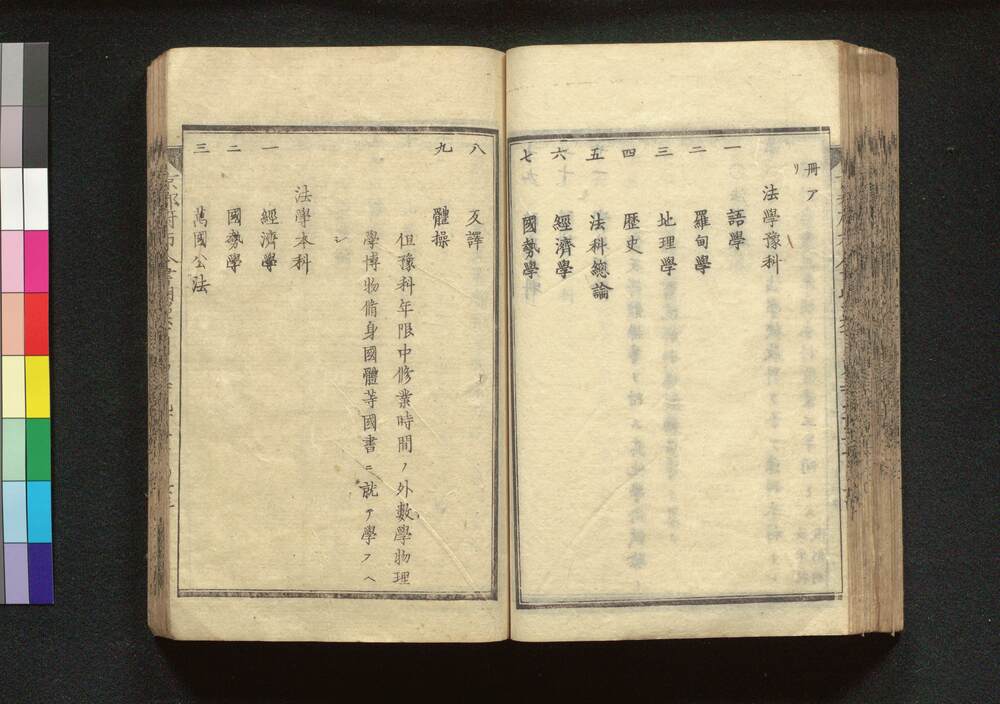 冊ア
リ
法學豫科
一 語學
二 羅甸學
三 地理學
四 歴史
五 法科總論
六 經濟學
七 國勢學
八 反譯
九 體操
但豫科年限中修業時間ノ外數學物理
學博物脩身國體等國書ニ就テ學フヘ
シ
法學本科
一 經濟學
二 國勢學
三 萬國公法